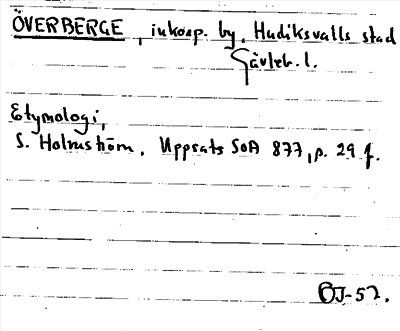 ÖVERBERGE, inkorp. by, Hudiksvalls stad
Gävleb. l.
Etymologi,
S. Holmström, Uppsats SOA 877, p. 29 f.
BJ-52.